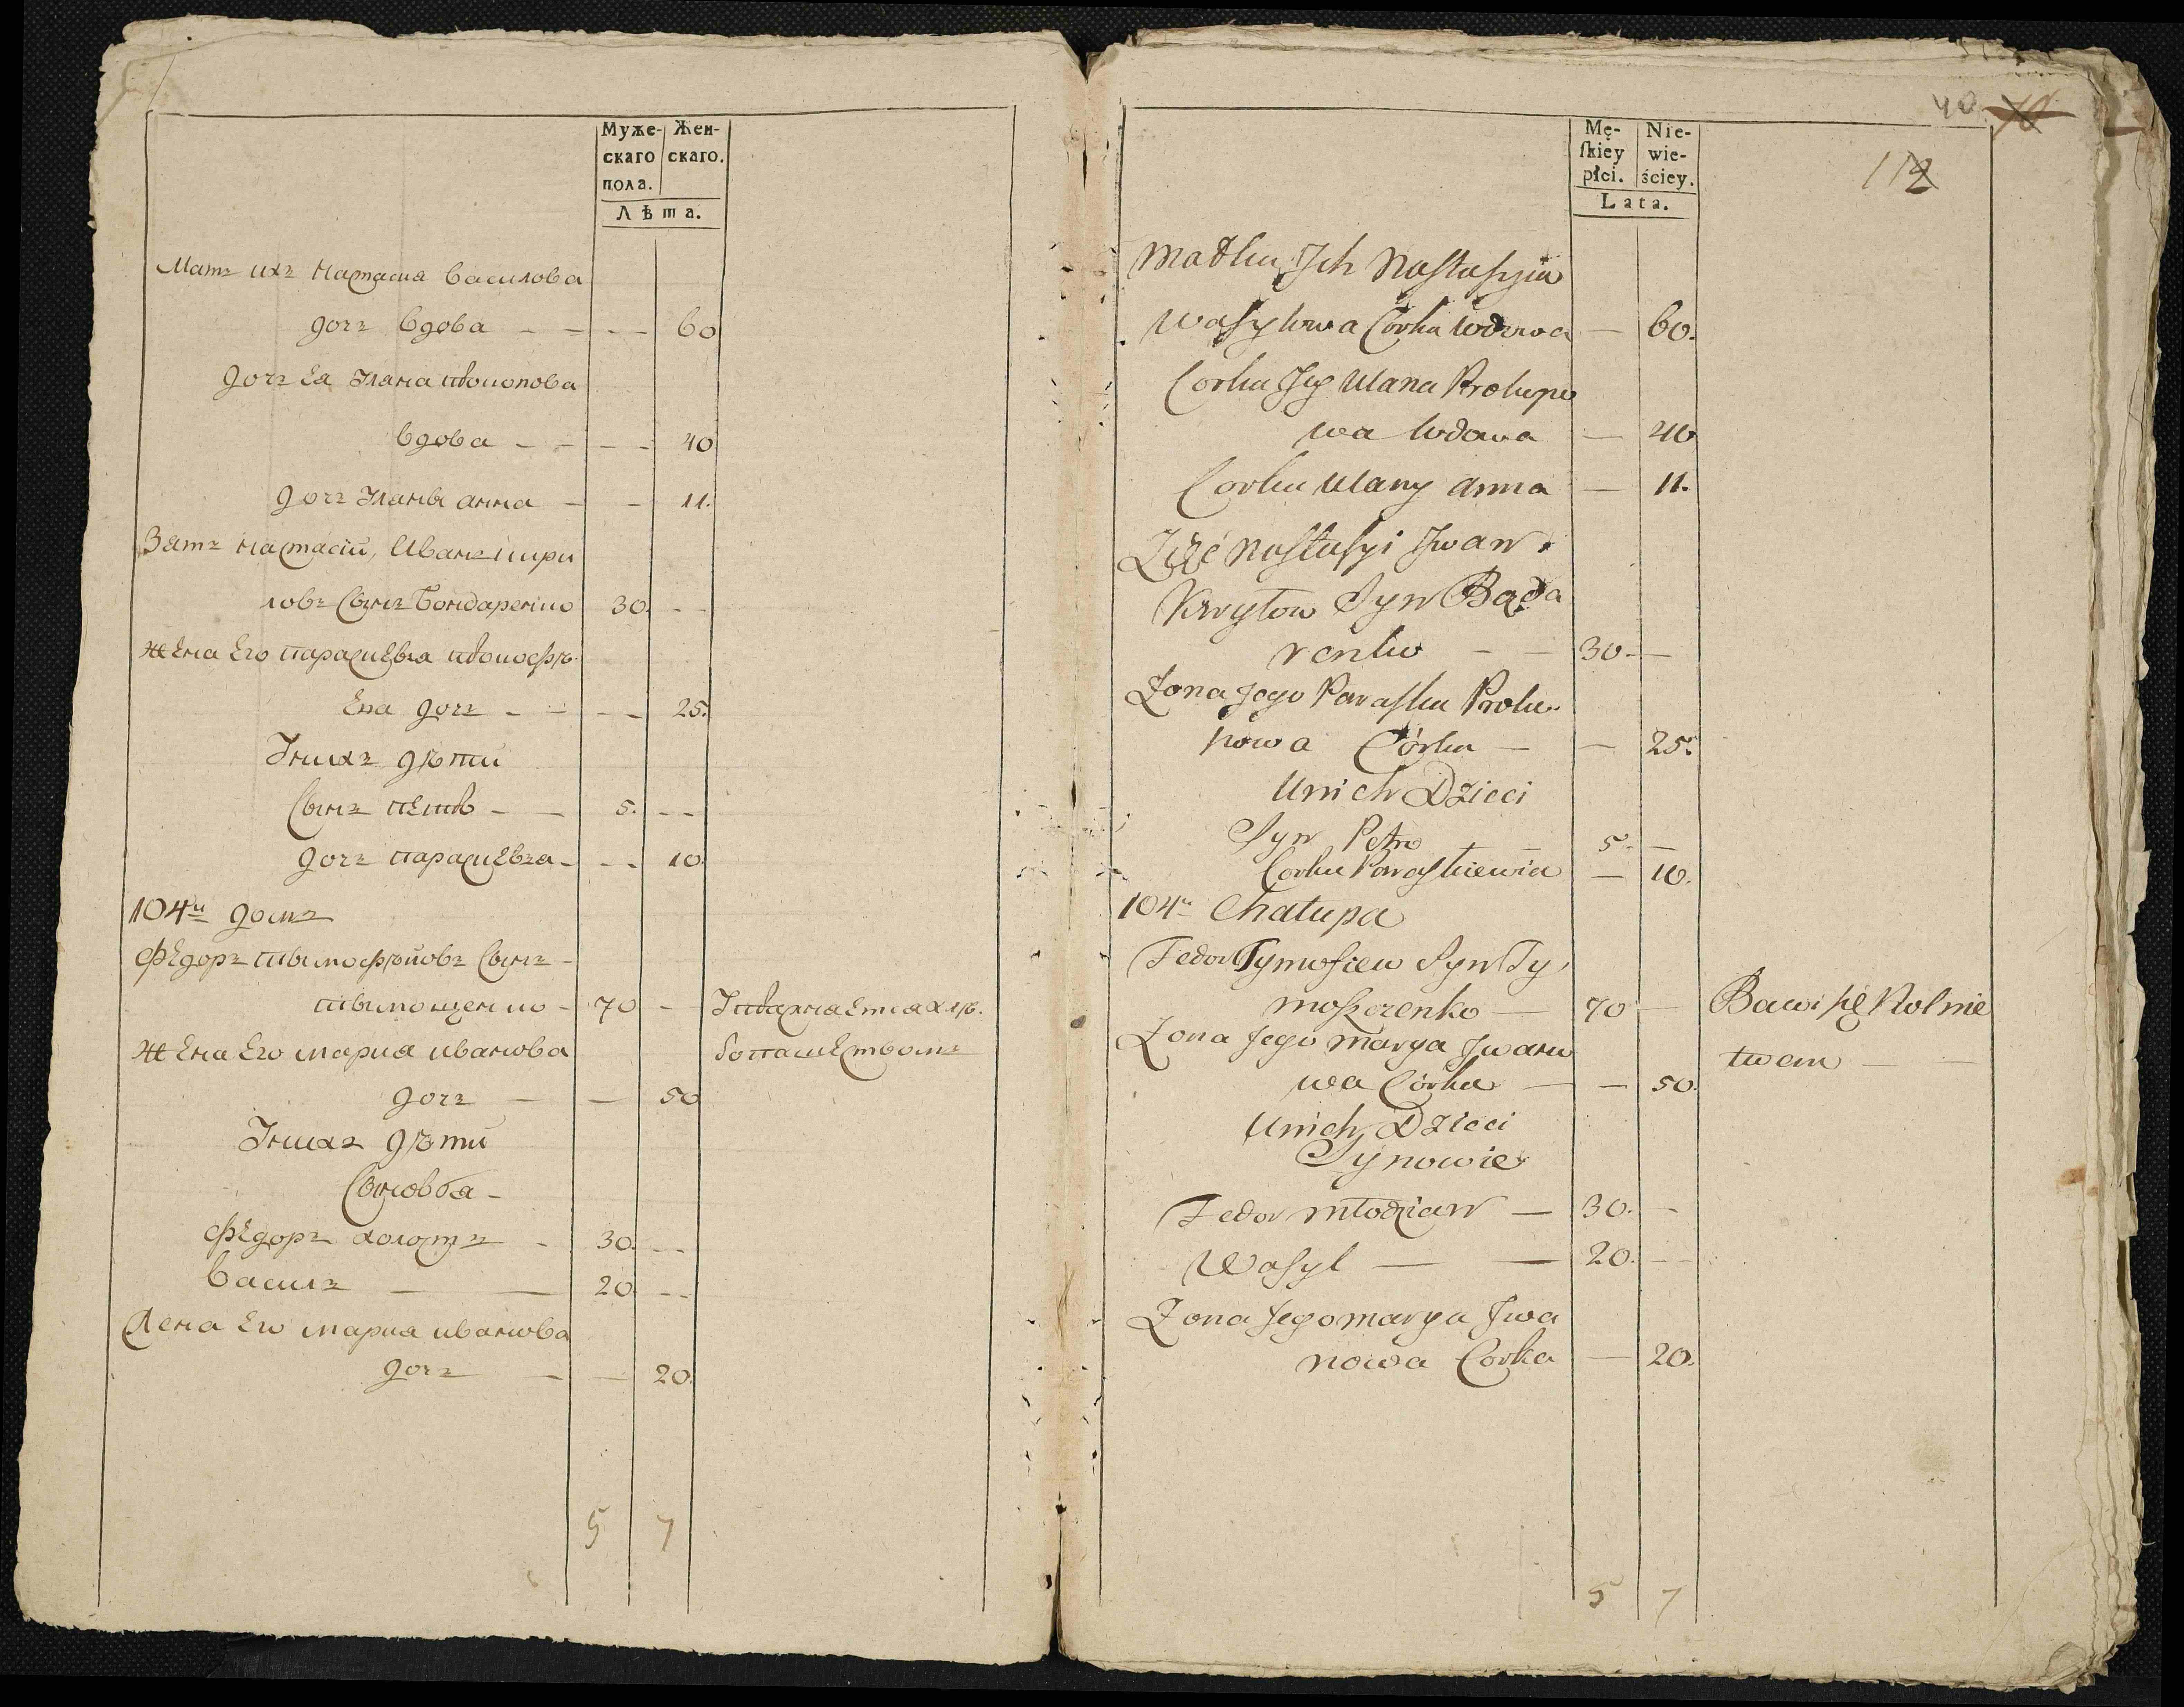 Муже-
скаго
пола.
Жен-
скаго.
Лѣта.
Мать ихъ Настасия василова
дочъ вдова - - - - 60
дочъ Ея Уляна прокопова
вдова - - - - 40
дочъ Уляны анна - - 11.
Зять настасіи, Иванъ кири
ловъ Сынъ Бондаренко 30. - -
жена Его параскевия прокофѣ.
Ева дочъ - - - - 25.
Унихъ дѣти
Сынъ петро - - 5. - -
дочъ параскевия - - - 10.
104й домъ
Фёдоръ тымофѣйовъ Сынъ -
тымощенко - 70 - - Упражняется хлѣ.
жена Его мария иванова
бопашеством
дочъ - - 50
Унихъ дѣти
Сыновья -
Фёдоръ холостъ - 30. - -
василъ - - 20. - -
Жена Его мария иванова
дочъ - - 20.
5 7
40
112
Mę-
ſkiey
płci.
Nie-
wie-
ściey.
Lata.
Matka Ich Nastasyia
Wasylowa Corka wdowa - 60.
Corka Jey Ulana Prokopo
wa wdowa - 40
Corka Ulany anna - 11.
Zięć Nastasyi Iwan
Kryłow Syn Bąda
renko - - 30. -
Zona Jego Paraska Proko-
powa Córka - - 25.
Unich Dzieci
Syn Petro - - 5. -
Corka Paraskiewia - 10.
104a Chałupa
Fedor Tymosiew Syn Ty
moszczenko - 70 - Bawi się Rolnic
Zona Jego Marya Iwano
twem -
wa Córka - - 50.
Unich Dzieci
Synowie
Fedor Młodzian - 30. -
Wasyl - - 20. - -
Zona Jego Marya Iwa
nowa Corka - 20.
5 7